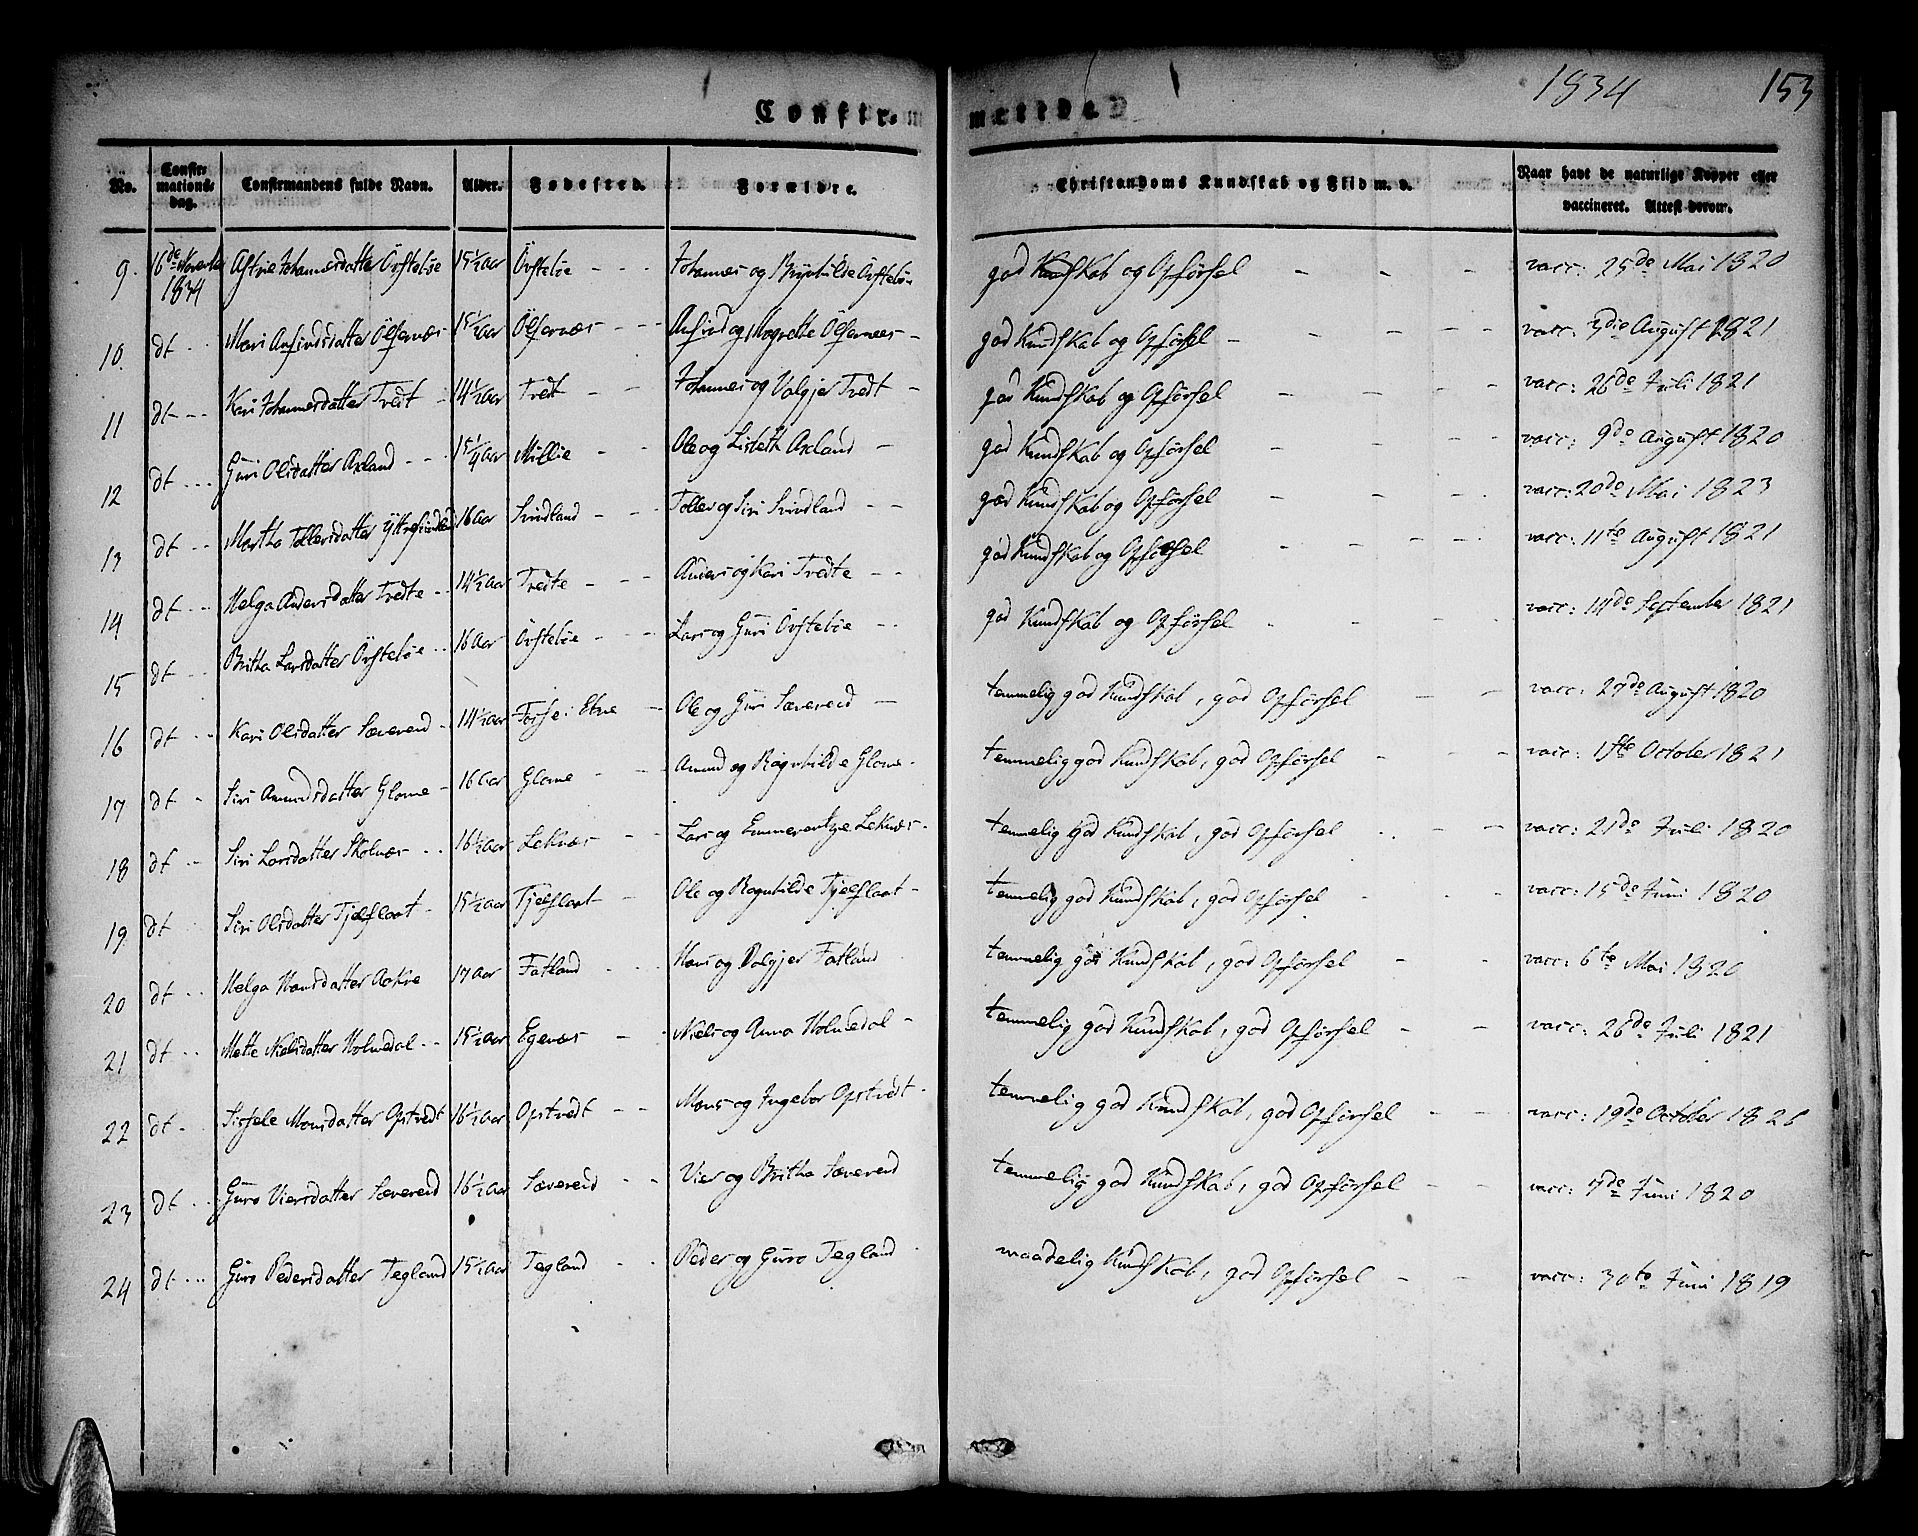 1834 153
Confir- merede
No. Confir- mations- dag. Confirmandens fulde Navn. Alder. Fødested. Forældre. Christendoms Kundskab og Flid m. v. Naar havt de naturlige Kopper eller vaccineret. Attest derom.
9. 16de November 1834 Johannesdatter Øvstebøe 15½ Aar Øvstebøe - - - Johannes og Øvstebøe god Kundskab og Opførsel - - - - vacc: 25de Mai 1820
10. dt - - Mari Anfindsdatter Ölfernæs 15½ Aar Ölfernæs - - - Anfind og Magrethe Ölfernæs - god Kundskab og Opførsel - - - - - vacc: 3die August 1821
11 dt - - - Kari Johannesdatter Tredt - 14½ Aar Tredt - - Johannes og Valgjer Tredt - god Kundskab og Opførsel - - - - vacc: 26de Juli 1821
12 dt - - - Guri Olsdatter Axland - - - 15¼ Aar Millie - - Ole og Lisbeth Axland - god Kundskab og Opførsel - - - - vacc: 9de August 1820
13 dt - - Martha Tollersdatter 16 Aar Svidland - - - Toller og Siri Svidland - - god Kundskab og Opførsel - - - - vacc: 20de Mai 1823
14 dt - - - Helga Andersdatter Tredte - - 14½ Aar Tredte - - - Anders og Kari Tredte - - god Kundskab og Opførsel - - - - vacc: 11te August 1821
15 dt - - - Britha Larsdatter Øvstebøe - - 16 Aar Øvstebøe - - - Lars og Guri Øvstebøe - - god Kundskab og Opførsel - - - - vacc: September 1821
16 dt - - Kari Olsdatter Sævereid - 14½ Aar i Etne - Ole og Guri Sævereid - temmelig god Kundskab, god Opførsel - - vacc: 27de August 1820
17 dt - Siri Amundsdatter Glome - 16 Aar Glome - - Amund og Ragnhilde Glome - temmelig god Kundskab, god Opførsel - - - vacc: 1ste October 1821
18 dt - - Siri Larsdatter Skolnæs - - 16½ Aar Leknæs - - Lars og Emmerentze Leknæs - temmelig god Kundskab, god Opførsel - - - vacc: 21de Juli 1820
19 dt - - Siri Olsdatter Tjelflaat - 15½ Aar Tjelflaat - - Ole og Ragnhilde Tjelflaat - temmelig god Kundskab, god Opførsel - - - vacc: 15de Juni 1820
20 dt - - Helga Hansdatter Aakre 17 Aar Fatland - - - Hans og Valgjer Fatland temmelig god Kundskab, god Opførsel - - vacc: 6te Mai 1820
21 dt - - Mette Nielsdatter Holmedal - - 15½ Aar Egenæs - - Niels og Anna Holmedal - temmelig god Kundskab, god Opførsel - - vacc: 26de Juli 1821
22 dt - Sissele Monsdatter Opstvedt 16½ Aar Opstvedt - - Mons og Ingebor Opstvedt - temmelig god Kundskab, god Opførsel - - vacc: 19de October
23 dt - - Guro Viersdatter Sævereid 16½ Aar Sævereid - - Vier og Britha Sævereid temmelig god Kundskab, god Opførsel - - vacc: Juni 1820
24 dt - - - Guro Pedersdatter Tegland 15½ Aar Tegland - - Peder og Guro Tegland maadelig Kundskab, god Opførsel - - vacc: 30te Juni 1819